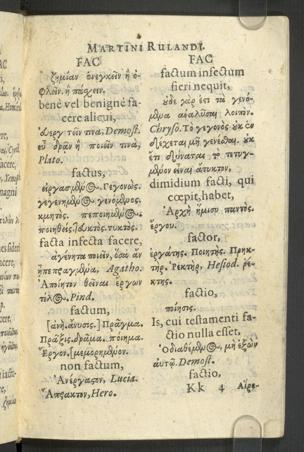 MARTINI RULANDI.
FAC
ζημίαν ἀνεγκεῖν ἢ ὀ-
φλεῖν. ἢ πάσχειν.
benè vel benignè fa-
cere alicui,
εὐεργετῶν τινα, Demost.
εὖ δρᾶν ἢ ποιεῖν τινα,
Plato.
factus,
εἰργασμένος. Γεγονώς.
γεγενημένος. γενόμενος.
κμητός. πεποιημένος.
ποιηθείς.
facta infecta facere,
ἀγένητα ποιεῖν, ὅσα ἂν
ᾖ πεπραγμένα, Agatho.
Ἀποίητον θεῖναι ἔργων
τέλος. Pind.
factum,
Πρᾶγμα.
Πρᾶξις. δρᾶμα. ποίημα.
Ἔργον.
non factum,
Lucia.
Ἄπρακτον, Hero.
FAC
factum infectum
fieri nequit,
οὐδὲ γὰρ ἔτι τὰ γενό-
μενα ἀναλῦσαι λοιπόν.
Chryso. Τὸ γεγονὸς οὐκ ἐν-
δέχεται μὴ γενέσθαι. οὐκ
ἔτι δύναται τὸ πεπραγ-
μένον εἶναι ἄτυκτον.
dimidium facti, qui
cœpit, habet,
Ἀρχὴ ἥμισυ παντὸς
ἔργου.
factor,
ἐργάτης. Ποιητής. Πρηκ-
τήρ. Ῥεκτήρ, Hesiod. ῥέ-
κτης.
factio,
ποίησις.
Is, cui testamenti fa-
ctio nulla esset,
Ὁ διαθέμενος, μὴ ἐξὸν
αὐτῷ. Demost.
factio,
Kk 4 Αἵρε-